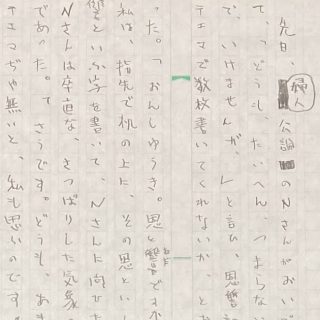 先日、婦人公論のNさんがおいで
て、「どうも、たいへん、つまらない
で、いけませんが、」と言ひ、恩讐
テエマで数枚書いてくれないか、とお
った。「おんしゆうき。恩と讐ですか
私は、指先で机の上に、その恩といふ
讐といふ字を書いて、Nさんに向ひ
Nさんは卒直な、きっぱりした気象
であった。「さうです。どうも、あま
テエマぢや無いと、私も思ふのです。